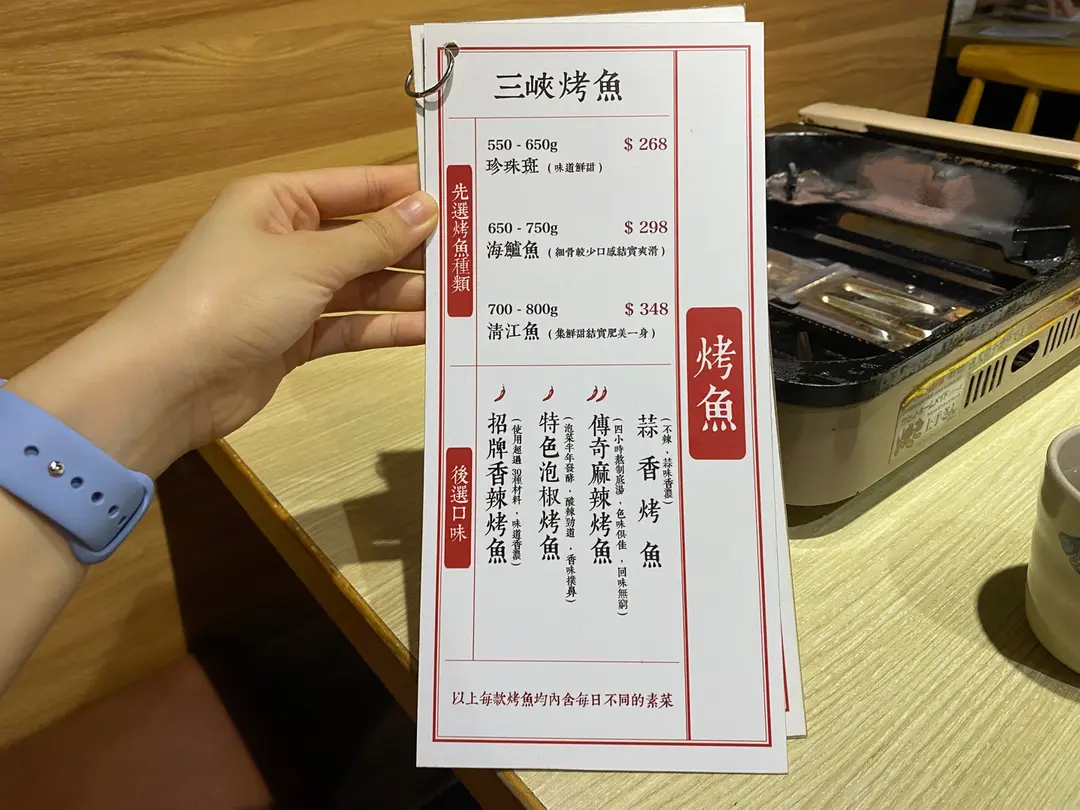 三峽烤魚
先選烤魚種類
550 - 650g $ 268
珍珠斑 (味道鮮甜)
650 - 750g $ 298
海鱸魚 (細骨較少口感結實爽滑)
700 - 800g $ 348
清江魚 (集鮮甜結實肥美一身)
烤魚
後選口味
蒜香烤魚
(不辣，蒜味香濃)
傳奇麻辣烤魚
(四小時熬制底湯，色味俱佳，回味無窮)
特色泡椒烤魚
(泡菜半年發酵，酸辣勁道，香味撲鼻)
招牌香辣烤魚
(使用超過30種材料，味道香濃)
以上每款烤魚均內含每日不同的素菜